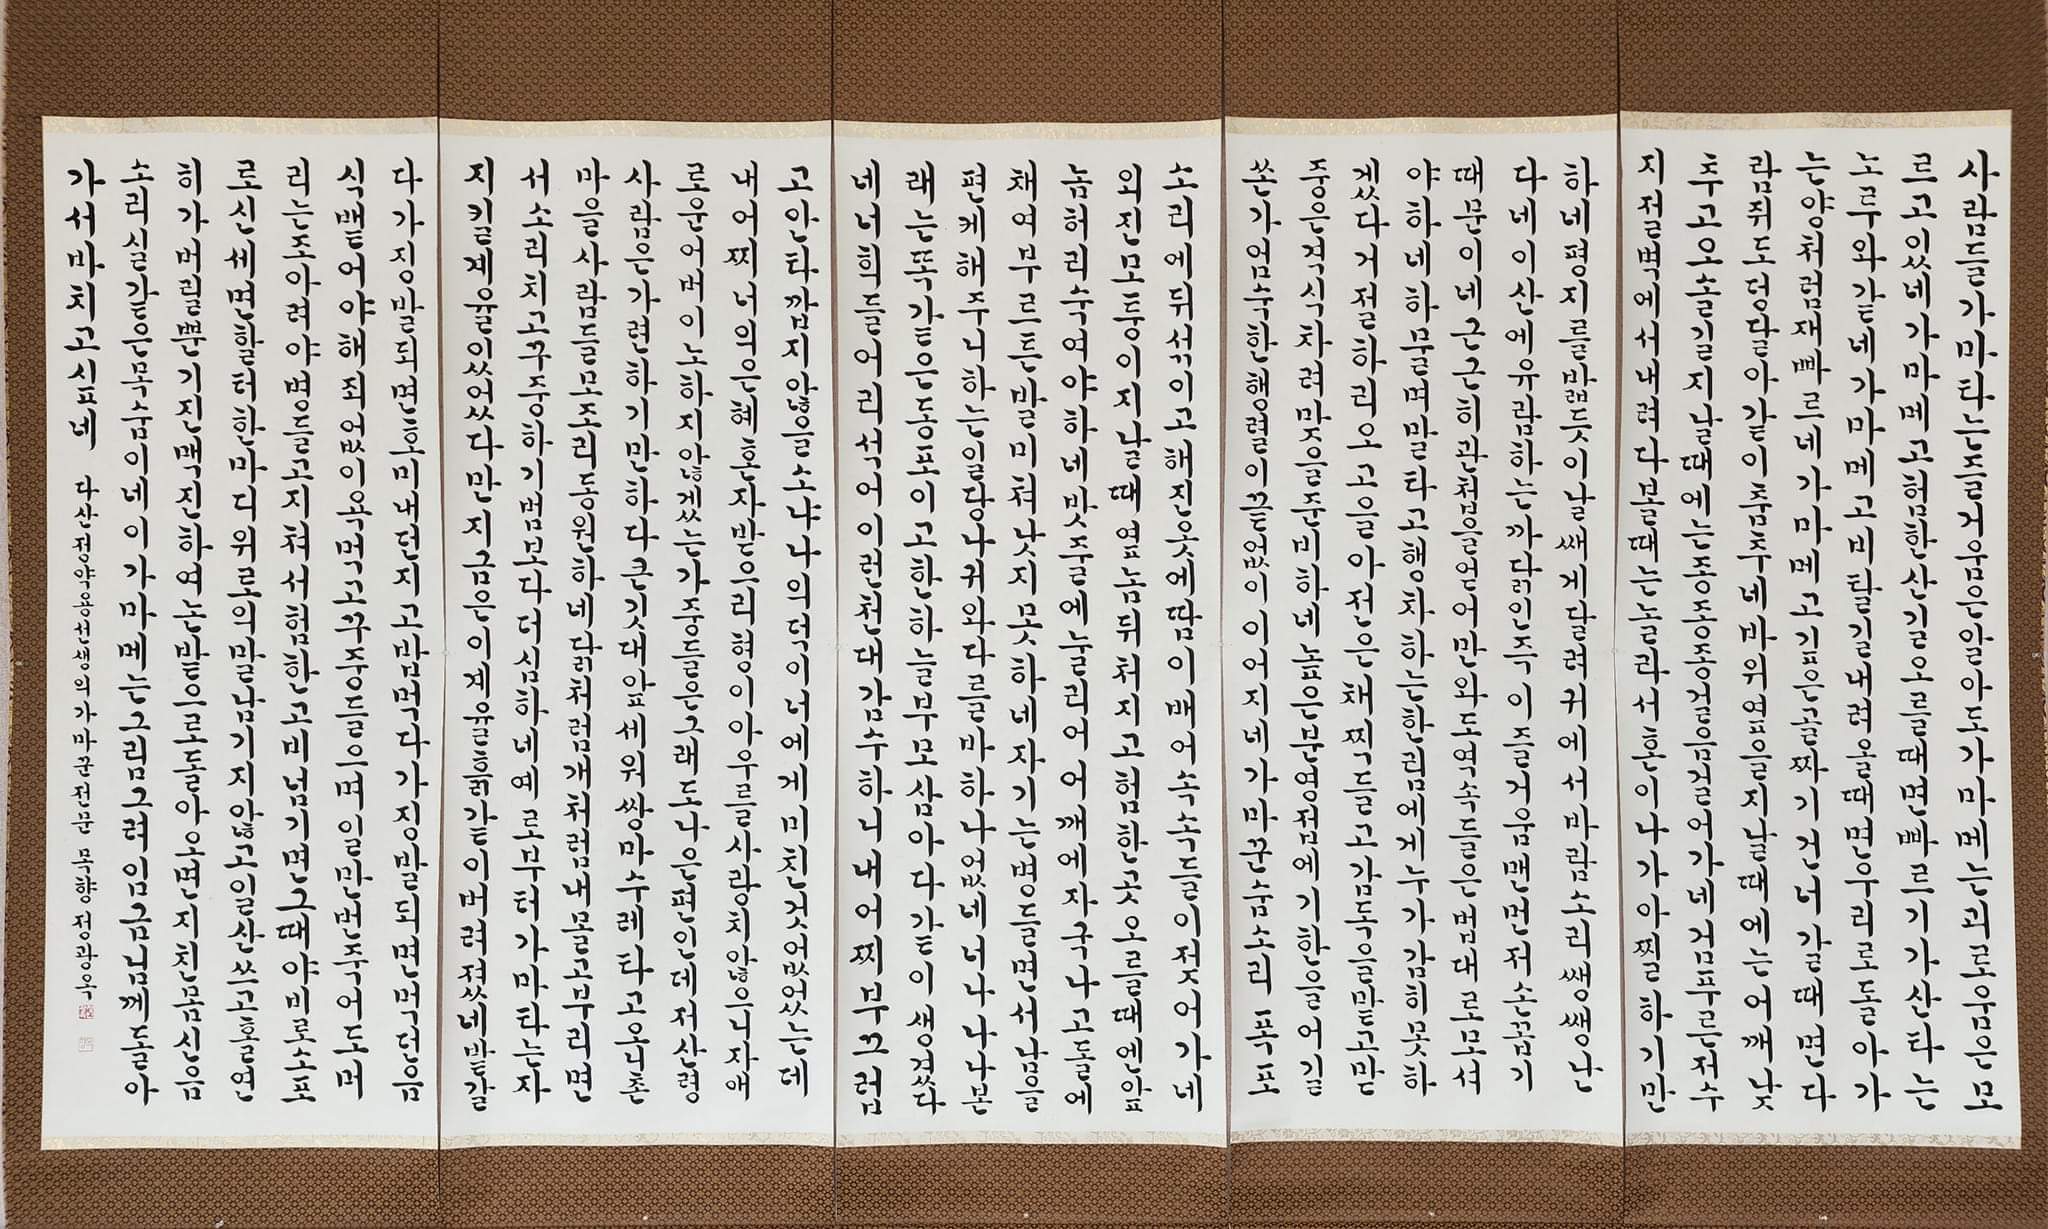 사람들가마타는즐거움은알아도가마메는괴로움은모
르고있네가마메고험한산길오를때면빠르기가산타는
노루와같네가마메고비탈길내려올때면우리로돌아가
는양처럼재빠르네가마메고깊은골짜기건너갈때면다
람쥐도덩달아같이춤추네바위옆을지날때에는어깨낮
추고오솔길지날때에는종종종걸음걸어가네검푸른저수
지절벽에서내려다볼때는놀라서혼이나가아찔하기만
하네평지를밟듯이날쌔게달려귀에서바람소리쌩쌩난
다네이산에유람하는까닭인즉이즐거움맨먼저손꼽기
때문이네근근히관첩을얻어만와도역속들은법대로모셔
야하네하물며말타고행차하는한림에게누가감히못하
겠다거절하리오고을아전은채찍들고감독을맡고만
중은격식차려맞을준비하네높은분영접에기한을어길
쏜가엄숙한행렬이끝없이이어지네가마꾼숨소리 폭포
소리에뒤섞이고해진옷에땀이배어속속들이젖어가네
외진모퉁이지날때옆놈뒤처지고험한곳오를때엔앞
놈허리숙여야하네밧줄에눌리어어깨에자국나고돌에
채여부르튼발미쳐낫지못하네자기는병들면서남을
편케해주니하는일당나귀와다를바하나없네너나나본
래는똑같은동포이고한하늘부모삼아다같이생겼다
네너희들어리석어이런천대감수하니내어찌부끄럽
고안타깝지않을소냐나의덕이너에게미친것없었는데
내어찌너의은혜혼자받으리형이아우를사랑치않으니자애
로운어버이노하지않겠는가중들은그래도나은편인데저산령
사람은가련하기만하다큰깃대앞세워쌍마수레타고오니촌
마을사람들모조리동원하네닭처럼개처럼내몰고부리면
서소리치고꾸중하기범보다더심하네예로부터가마타는자
지킬계율있었다만지금은이계율흙같이버려졌네밭갈
다가징발되면호미내던지고밥먹다가징발되면먹던음
식뱉어야해죄없이욕먹고꾸중들으며일만번죽어도머
리는조아려야병들고지쳐서험한고비넘기면그때야비로소포
로신세면할터한마디위로의말남기지않고일산쓰고훌연
히가버릴뿐기진맥진하여논밭으로돌아오면지친몸신음
소리실같은목숨이네이가마메는그림그려임금님께돌아
가서바치고싶네 다산정약용선생의가마꾼전문 묵향정광옥